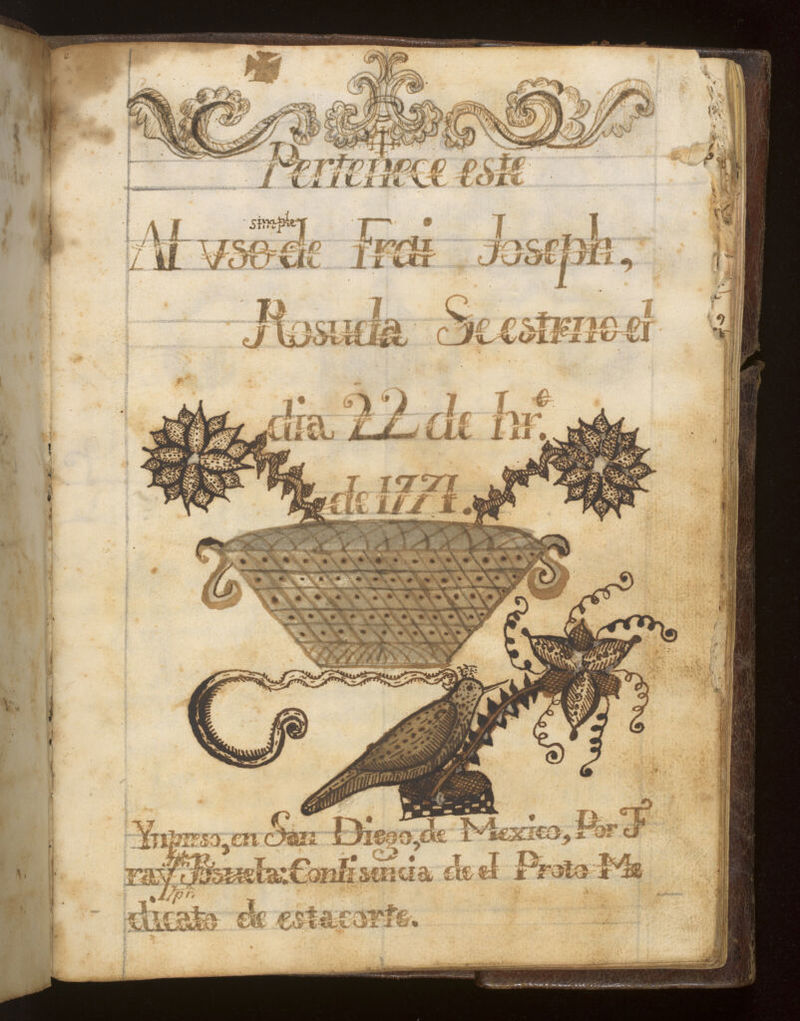 Pertenece este
simple
Al vso de Frai Joseph,
Rosuela Se estreno el
dia 22 de hr.e
de 1771.
Ynpreso, en San Diego, de Mexico, Por F
ray Rosuela: Con lisencia de el Proto Me
dicato de esta corte.